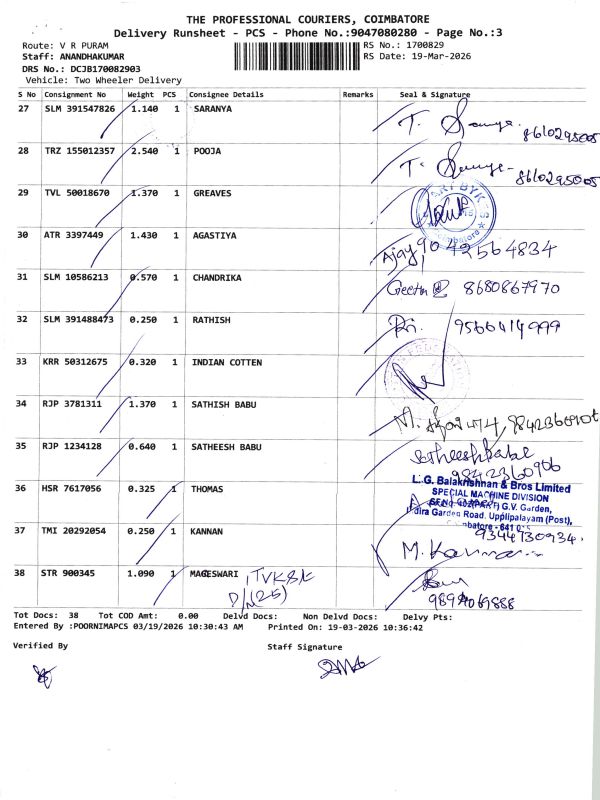 THE PROFESSIONAL COURIERS, COIMBATORE
Delivery Runsheet - PCS - Phone No.:9047080280 - Page No.:3
Route: V R PURAM
RS No.: 1700829
Staff: ANANDHAKUMAR
RS Date: 19-Mar-2026
DRS No.: DCJB170082903
Vehicle: Two Wheeler Delivery
S No Consignment No Weight PCS Consignee Details Remarks Seal & Signature
27 SLM 391547826 1.140 1 SARANYA
8610295005
28 TRZ 155012357 2.540 1 POOJA
8610295005
29 TVL 50018670 1.370 1 GREAVES
30 ATR 3397449 1.430 1 AGASTIYA
Ajay 9042564834
31 SLM 10586213 0.570 1 CHANDRIKA
Geetha 8680867970
32 SLM 391488473 0.250 1 RATHISH
9566414999
33 KRR 50312675 0.320 1 INDIAN COTTEN
34 RJP 3781311 1.370 1 SATHISH BABU
35 RJP 1234128 0.640 1 SATHEESH BABU
Satheesh Babu
9842360906
36 HSR 7617056 0.325 1 THOMAS
L.G. Balakrishnan & Bros Limited
SPECIAL MACHINE DIVISION
G.V. Garden,
Garden Road. Uppilipalayam (Post),
37 TMI 20292054 0.250 1 KANNAN
9344730934.
M. Kannan
38 STR 900345 1.090 1 MAGESWARI
Tot Docs: 38 Tot COD Amt: 0.00 Delvd Docs: Non Delvd Docs: Delvy Pts:
Entered By :POORNIMAPCS 03/19/2026 10:30:43 AM Printed On: 19-03-2026 10:36:42
Verified By Staff Signature